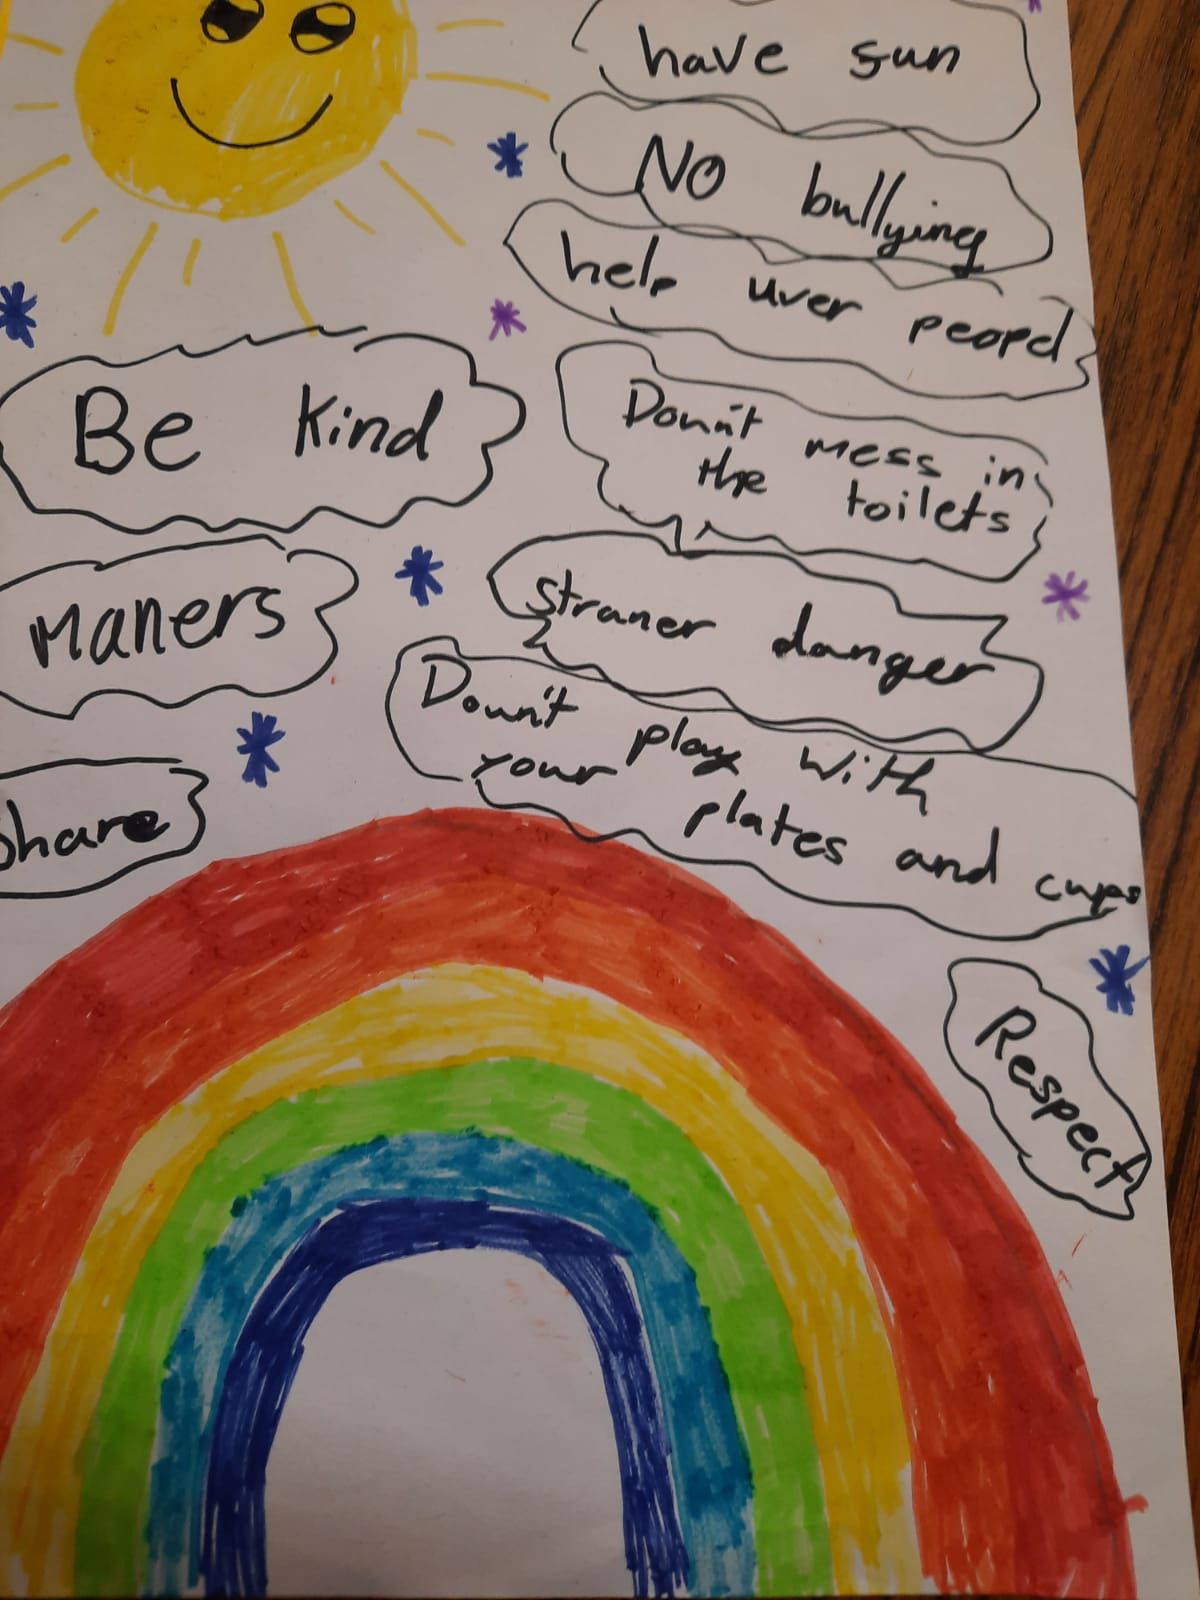 have sun
NO bullying
help uver peopel
Be kind
Donn't mess in
the toilets
Maners
straner danger
Doun't play with
your plates and cups
share
Respect